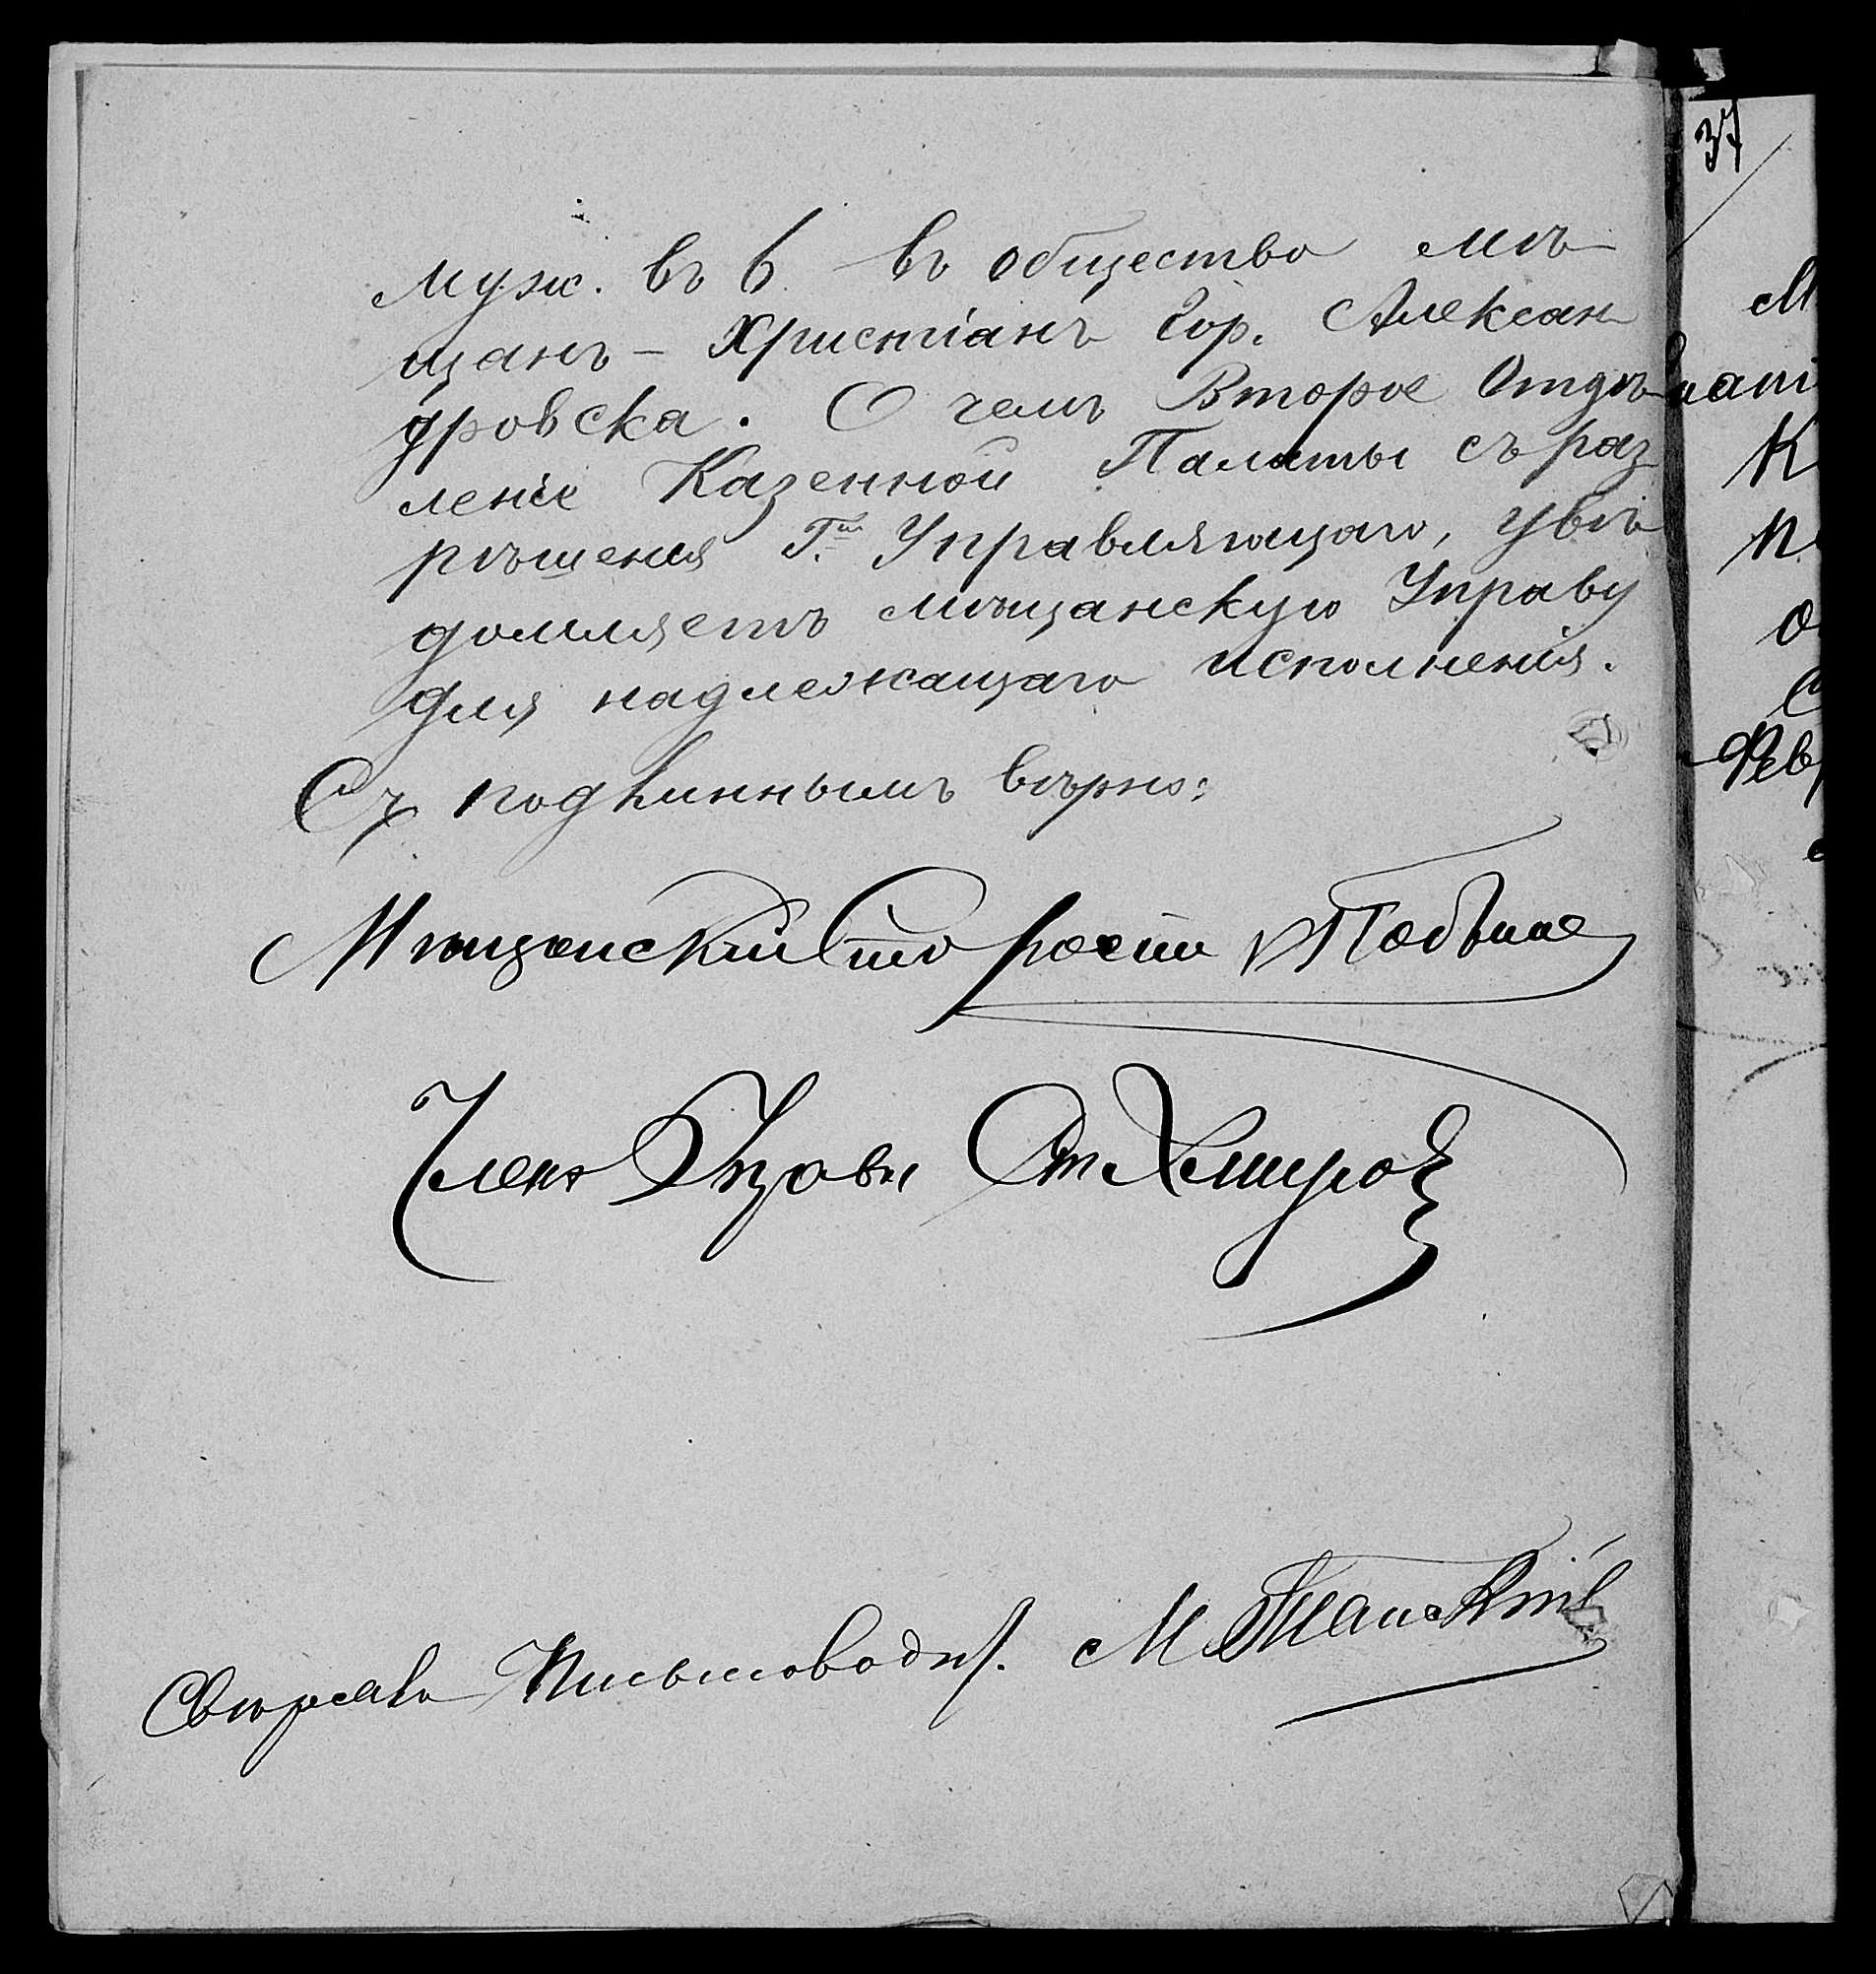 муж. въ 6 въ общество мѣ
щанъ - Христіанъ Гор. Алексан
дровска. О чемъ Второе Отдѣ
леніе Казенной Палаты съ раз
рѣшенія Г. Управляющаго, увѣ
домляетъ мѣщанскую Управу
для надлежащаго исполненія.
Съ подлиннымъ вѣрно:
Мѣщанскій Староста
Членъ Управы
Свѣрялъ Письмовод. М
37